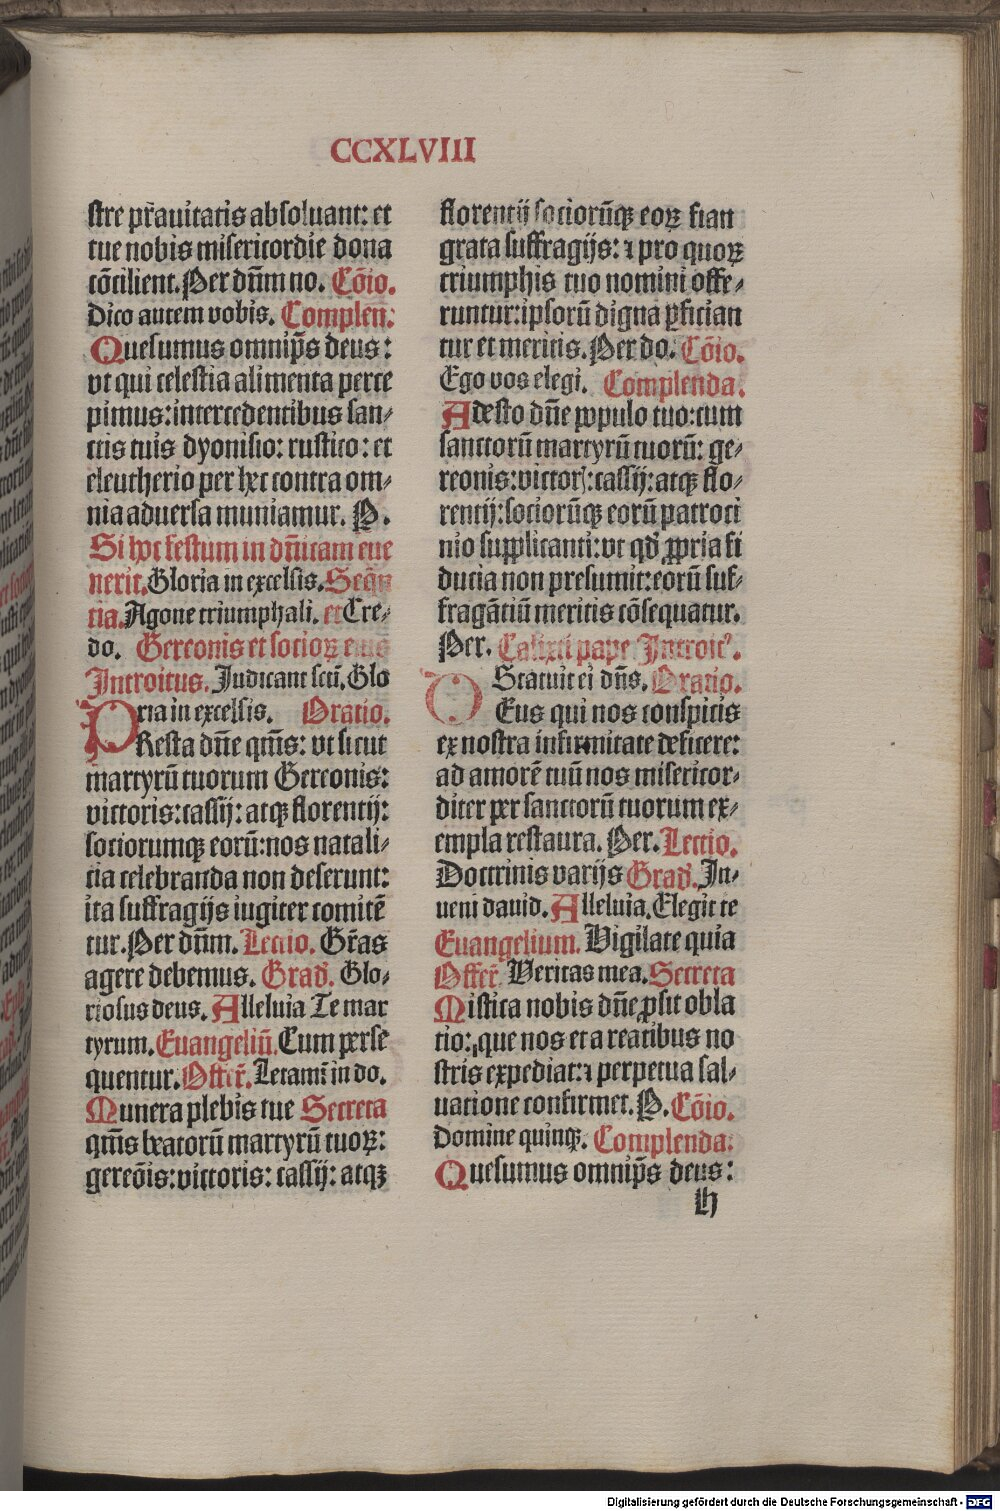 CCXLVIII
stre p̄rauitatis absoluant: et
tue nobis misericordie dona
cōcilient. Per dn̄m no. Cōio.
Dico autem vobis. Complen̄:
Quesumus omnip̄s deus:
vt qui celestia alimenta perce
pimus: intercedentibus san-
ctis tuis dyonisio: rustico: et
eleutherio per hec contra om-
nia aduersa muniamur. P.
Si hoc festum in dn̄icam eue
nerit. Gloria in excelsis. Seq̄n
tia. Agone triumphali. et Cre-
do. Gereonis et socioꝝ eius
Introitus. Judicant sctī. Glo
ria in excelsis. Oratio.
PResta dn̄e qm̄s: vt sicut
martyrū tuorum Gereonis:
victoris: cassij: atqꝫ florentij:
sociorumqꝫ eorū: nos natali-
cia celebranda non deserunt:
ita suffragijs iugiter comitē
tur. Per dn̄m. Lectio. Gr̄as
agere debemus. Grad̄. Glo-
riosus deus. Alleluia Te mar
tyrum. Euangeliū. Cum perse
quentur. Offer̄. Letami in do.
Munera plebis tue Secreta
qm̄s beatorū martyrū tuoꝝ:
gereōis: victoris: cassij: atqꝫ
florentij sociorūqꝫ eoꝝ fiant
grata suffragijs: ⁊ pro quoꝝ
triumphis tuo nomini offe-
runtur: ipsorū digna ꝑfician
tur et meritis. Per do. Cōio.
Ego vos elegi. Complenda.
Adesto dn̄e ꝓpulo tuo: cum
sanctorū martyrū tuorū: ge-
reonis: victor: cassij: atqꝫ flo-
rentij: sociorūqꝫ eorū patroci
nio supplicanti: vt qđ ꝓpria fi
ducia non presumit: eorū suf-
fragātiū meritis cōsequatur.
Per. Calixti pape Introit.
Statuit ei dn̄s. Oratio.
DEus qui nos conspicis
ex nostra infirmitate deficere:
ad amorē tuū nos misericor-
diter per sanctorū tuorum ex-
empla restaura. Per. Lectio.
Doctrinis varijs Grad̄. In-
ueni dauid. Alleluia. Elegit te
Euangelium. Vigilate quia
Offer̄. Veritas mea. Secreta
Mistica nobis dn̄e ꝓsit obla
tio: que nos et a reatibus no
stris expediat: ⁊ perpetua sal-
uatione confirmet. P. Cōio.
Domine quinqꝫ. Complenda:
Quesumus omnip̄s deus:
h
Digitalisierung gefördert durch die Deutsche Forschungsgemeinschaft - DFG